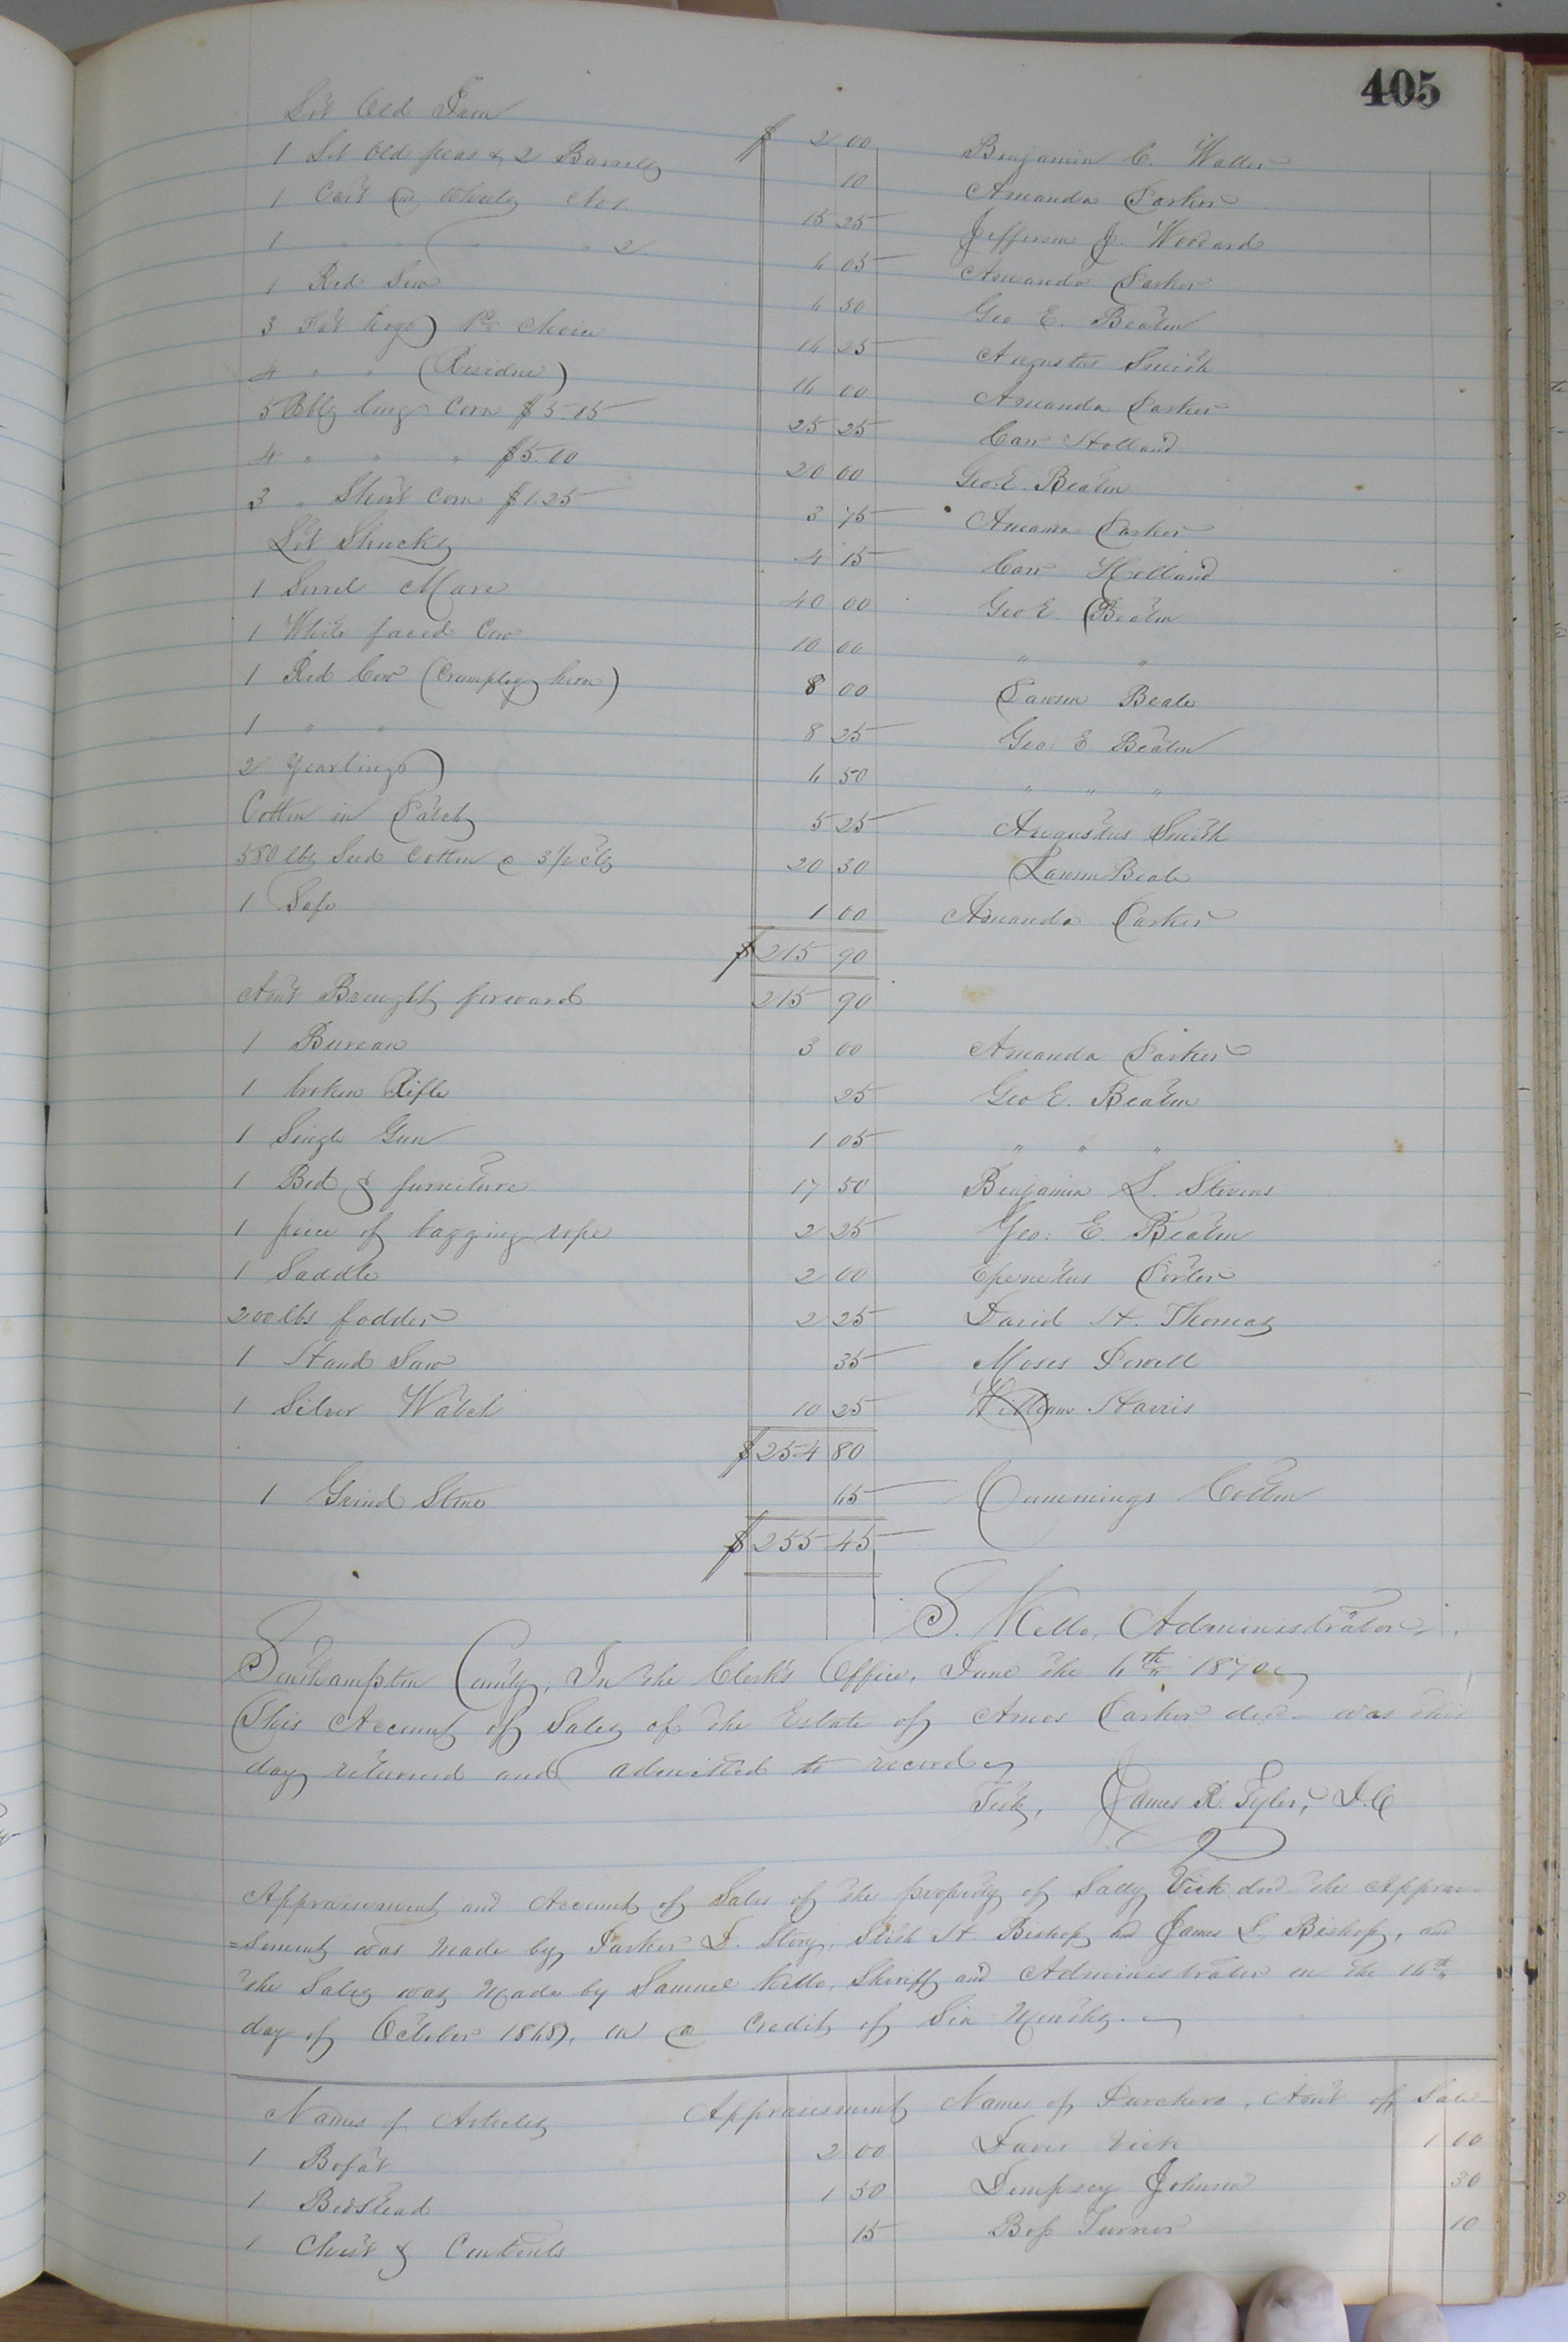 405
Lot Old Iron $ 2 00 Benjamin C. Waller
1 Lot Old peas & 2 Barrells 10 Amanda Parker
1 Cart & Wheels No 1. 15 25 Jefferson J. Woodard
1 " " " " 2 6 05 Amanda Parker
1 Red Sow 6 50 Geo E. Beaton
3 Fat hogs 1st Choice 16 25 Augustus Smith
4 " " (Residue) 16 00 Amanda Parker
5 Bbls long Corn $5.15 25 25 Carr Holland
4 " " " $5.00 20 00 Geo. E. Beaton
3 " Short Corn $1.25 3 75 Amanda Parker
Lot Shucks 4 15 Carr Holland
1 Sorrel Mare 40 00 Geo E. Beaton
1 White faced Cow 10 00 " "
1 Red Cow (Crumpley horn) 8 00 Lawson Beale
1 " " 8 25 Geo: E. Beaton
2 Yearlings 6 50 " " "
Cotton in Patch 5 25 Augustus Smith
580 lbs Seed Cotton @ 3½ cts 20 30 Lawson Beale
1 Safe 1 00 Amanda Parker
$ 215 90
Am't Brought forward 215 90
1 Bureau 3 00 Amanda Parker
1 broken Rifle 25 Geo E. Beaton
1 Single Gun 1 05 " " "
1 Bed & furniture 17 50 Benjamin L. Stevens
1 piece of bagging rope 2 25 Geo: E. Beaton
1 Saddle 2 00 Epenetus Porter
200 lbs fodder 2 25 David H. Thomas
1 Hand Saw 35 Moses Powell
1 Silver Watch 10 25 William Harris
$ 254 80
1 Grind Stone 65 Cummings Cotton
$ 255 45
S. Kello, Administrator.
Southampton County; In the Clerk's Office, June the 6th 1870
This Account of Sales of the Estate of Amos Parker decd was this
day returned and admitted to record
Teste, James R. Tyler, D.C
Appraisement and Account of Sales of the property of Sally Vick decd the Apprai-
=sement was made by Parker D. Story, H. Bishop and James S. Bishop, and
the Sales was Made by Samuel Kello, Sheriff and Administrator on the 16th
day of October 1868, on a Credit of Six Months.
Names of Articles Appraisement Names of Purchers. Am't of Sale
1 Bofat 2 00 Davis Vick 1 00
1 Bedstead 1 50 Dempsey Johnson 30
1 Chest & Contents 15 Bess Turner 10